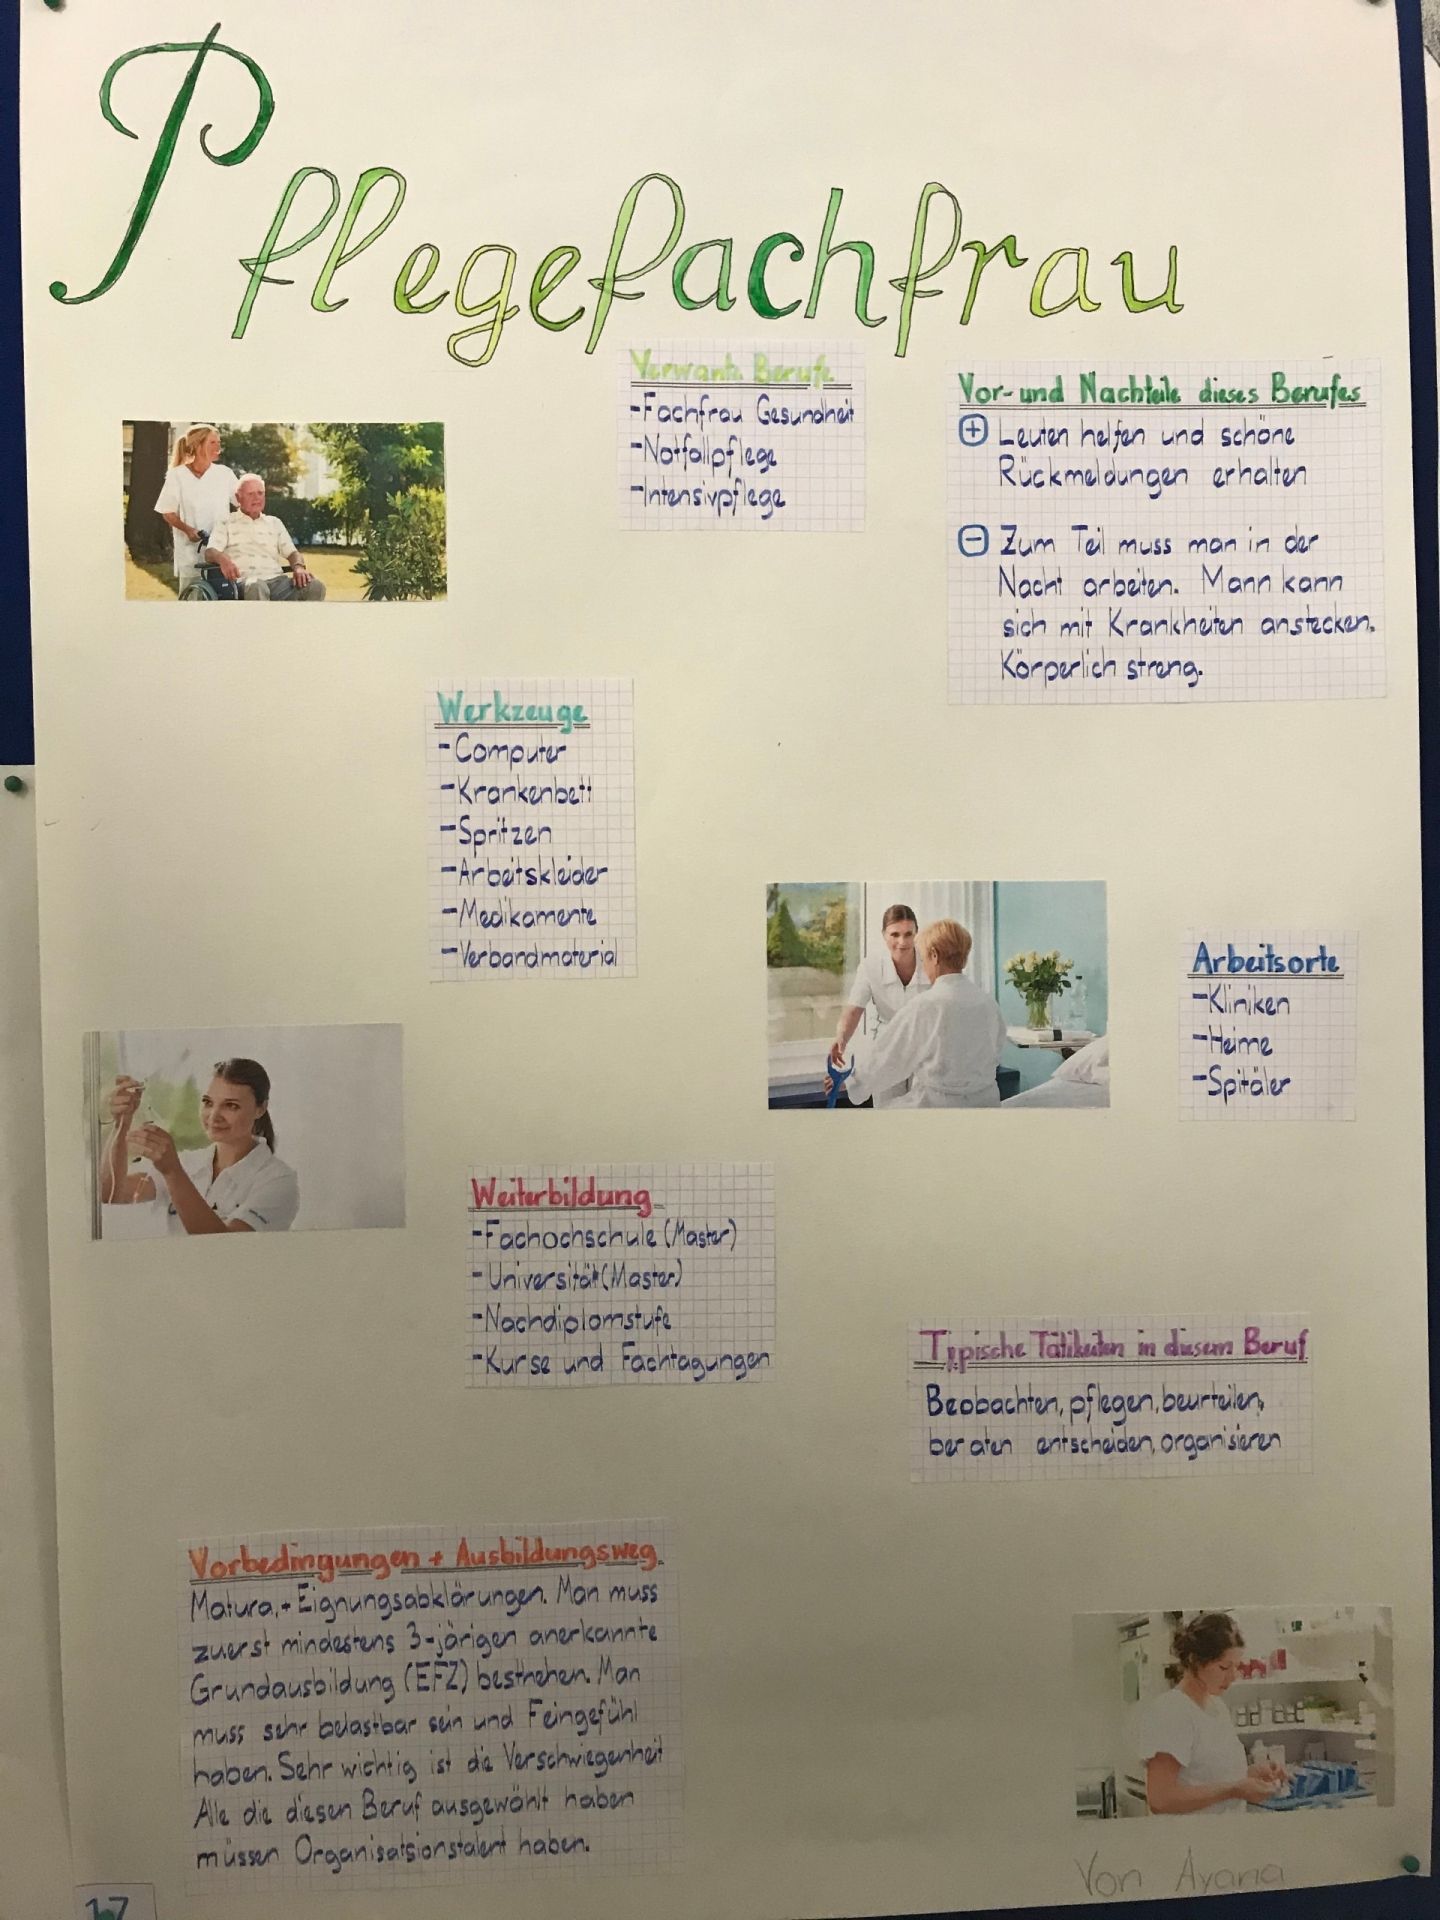 Pflegefachfrau
Verwante Berufe
-Fachfrau Gesundheit
-Notfallpflege
-Intensivpflege
Vor- und Nachteile dieses Berufes
+ Leuten helfen und schöne
Rückmeldungen erhalten
- Zum Teil muss man in der
Nacht arbeiten. Mann kann
sich mit Krankheiten anstecken.
Körperlich streng.
Werkzeuge
-Computer
-Krankenbett
-Spritzen
-Arbeitskleider
-Medikamente
-Verbandmaterial
Arbeitsorte
-Kliniken
-Heime
-Spitäler
Weiterbildung
-Fachochschule (Master)
-Universität (Master)
-Nachdiplomstufe
-Kurse und Fachtagungen
Typische Tätikeiten in diesem Beruf
Beobachten, pflegen, beurteilen,
beraten entscheiden, organisieren
Vorbedingungen + Ausbildungsweg
Matura, + Eignungsabklärungen. Man muss
zuerst mindestens 3-järigen anerkannte
Grundausbildung (EFZ) besthehen. Man
muss sehr belastbar sein und Feingefühl
haben. Sehr wichtig ist die Verschwiegenheit
Alle die diesen Beruf ausgewählt haben
müssen Organisatsionstalent haben.
Von Ayana
17